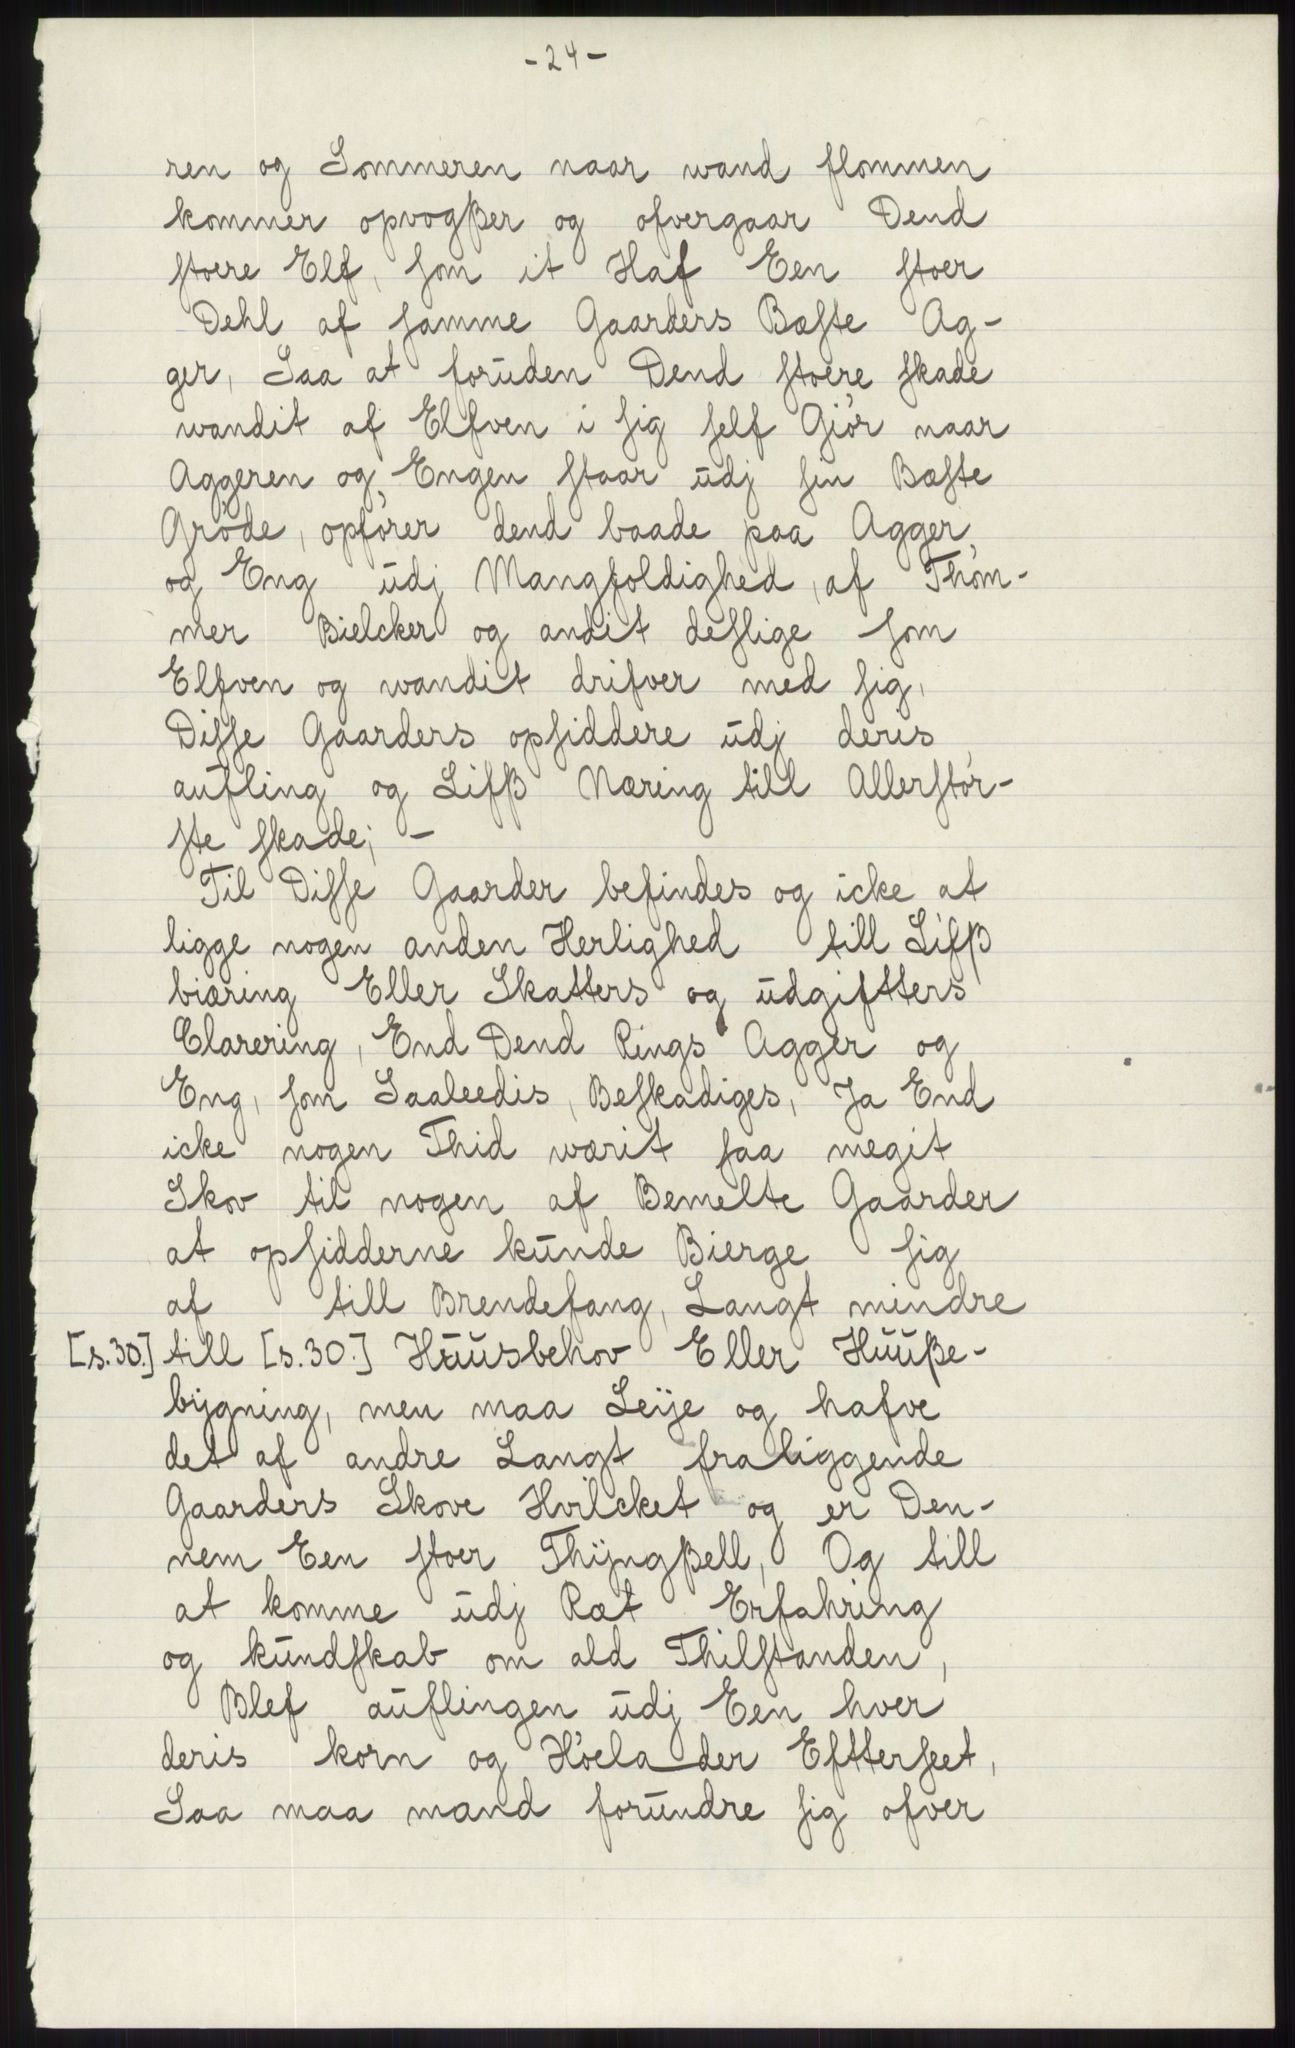 -24-
ren og Sommeren naar wand flommen
kommer opvogßer og ofvergaar Dend
stoere Elf, som it Haf Een stoer
Dehl af samme Gaarders Bæste Ag-
ger, Saa at foruden Dend stoere skade
wandit af Elfven i sig self Giör naar
Aggeren og Engen staar udj sin Bæste
Gröde, opförer dend baade paa Agger
og Eng udj Mangfoldighed, af Thöm-
mer Bielcker og andit deslige som
Elfven og wandit drifver med sig,
Disse Gaarders opsiddere udj deris
aufling og Lifß Næring till Allerstör-
ste skade; -
Til Disse Gaarder befindes og icke at
ligge nogen anden Herlighed till Lifß
biæring Eller Skatters og udgiftters
Clarering, End Dend Rings Agger og
Eng, som Saaleedis, Beskadiges, Ja End
icke nogen Thid wærit saa megit
Skov til nogen af Bemelte Gaarder
at opsidderne kunde Bierge sig
af till Brendefang, Langt mindre
[s.30.] till [s.30.] Huusbehov Eller Huuße-
bygning, men maa Leije og hafve
det af andre Langt fraliggende
Gaarders Skove Hvilcket og er Den-
nem Een stoer Thyngßell, Og till
at komme udj Ræt Erfahring
og kundskab om ald Thilstanden,
Blef auflingen udj Een hver
deris korn og Höela der Eftterseet,
Saa maa mand forundre sig ofver